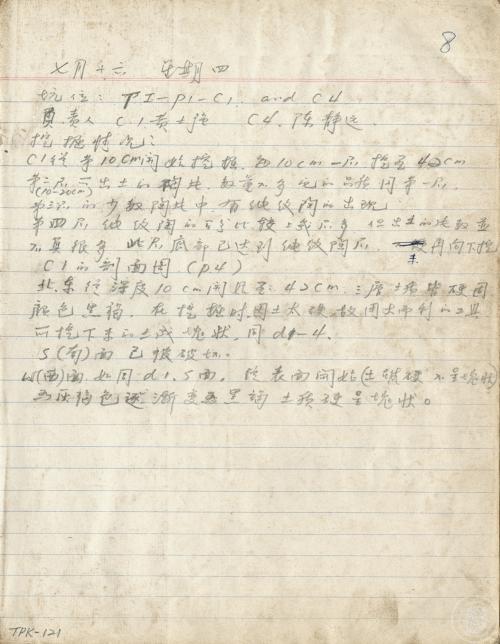 8
七月十六 星期四
坑位: PI-P1-C1 and C4
負責人 C1 黃士強 C4, 陳靜
挖掘情況:
C1從 10cm開始挖掘, 每10cm一層 挖至42cm
第二層(10-20cm) 出土的陶片, 數量不多 第一層.
第三層的少數陶片中, 有繩紋陶的出現
第四層 繩紋陶的百分比較上或層多 但出土的總數並
不算很多 此層底部已達到繩紋陶層. 再向下挖
C1的剖面圖 (P4)
北東從深度10cm開始至42cm 三層土 硬固
顏色黑褐. 在挖掘時因土太硬, 故
所挖下來的土成塊狀, 同d1-4.
S(南)面已被破坏.
W(西)面如同d1. S面, 從表面開始(土 硬 不呈塊狀)
為灰褐色逐漸變為黑褐 土質硬呈塊狀。
TPK-121